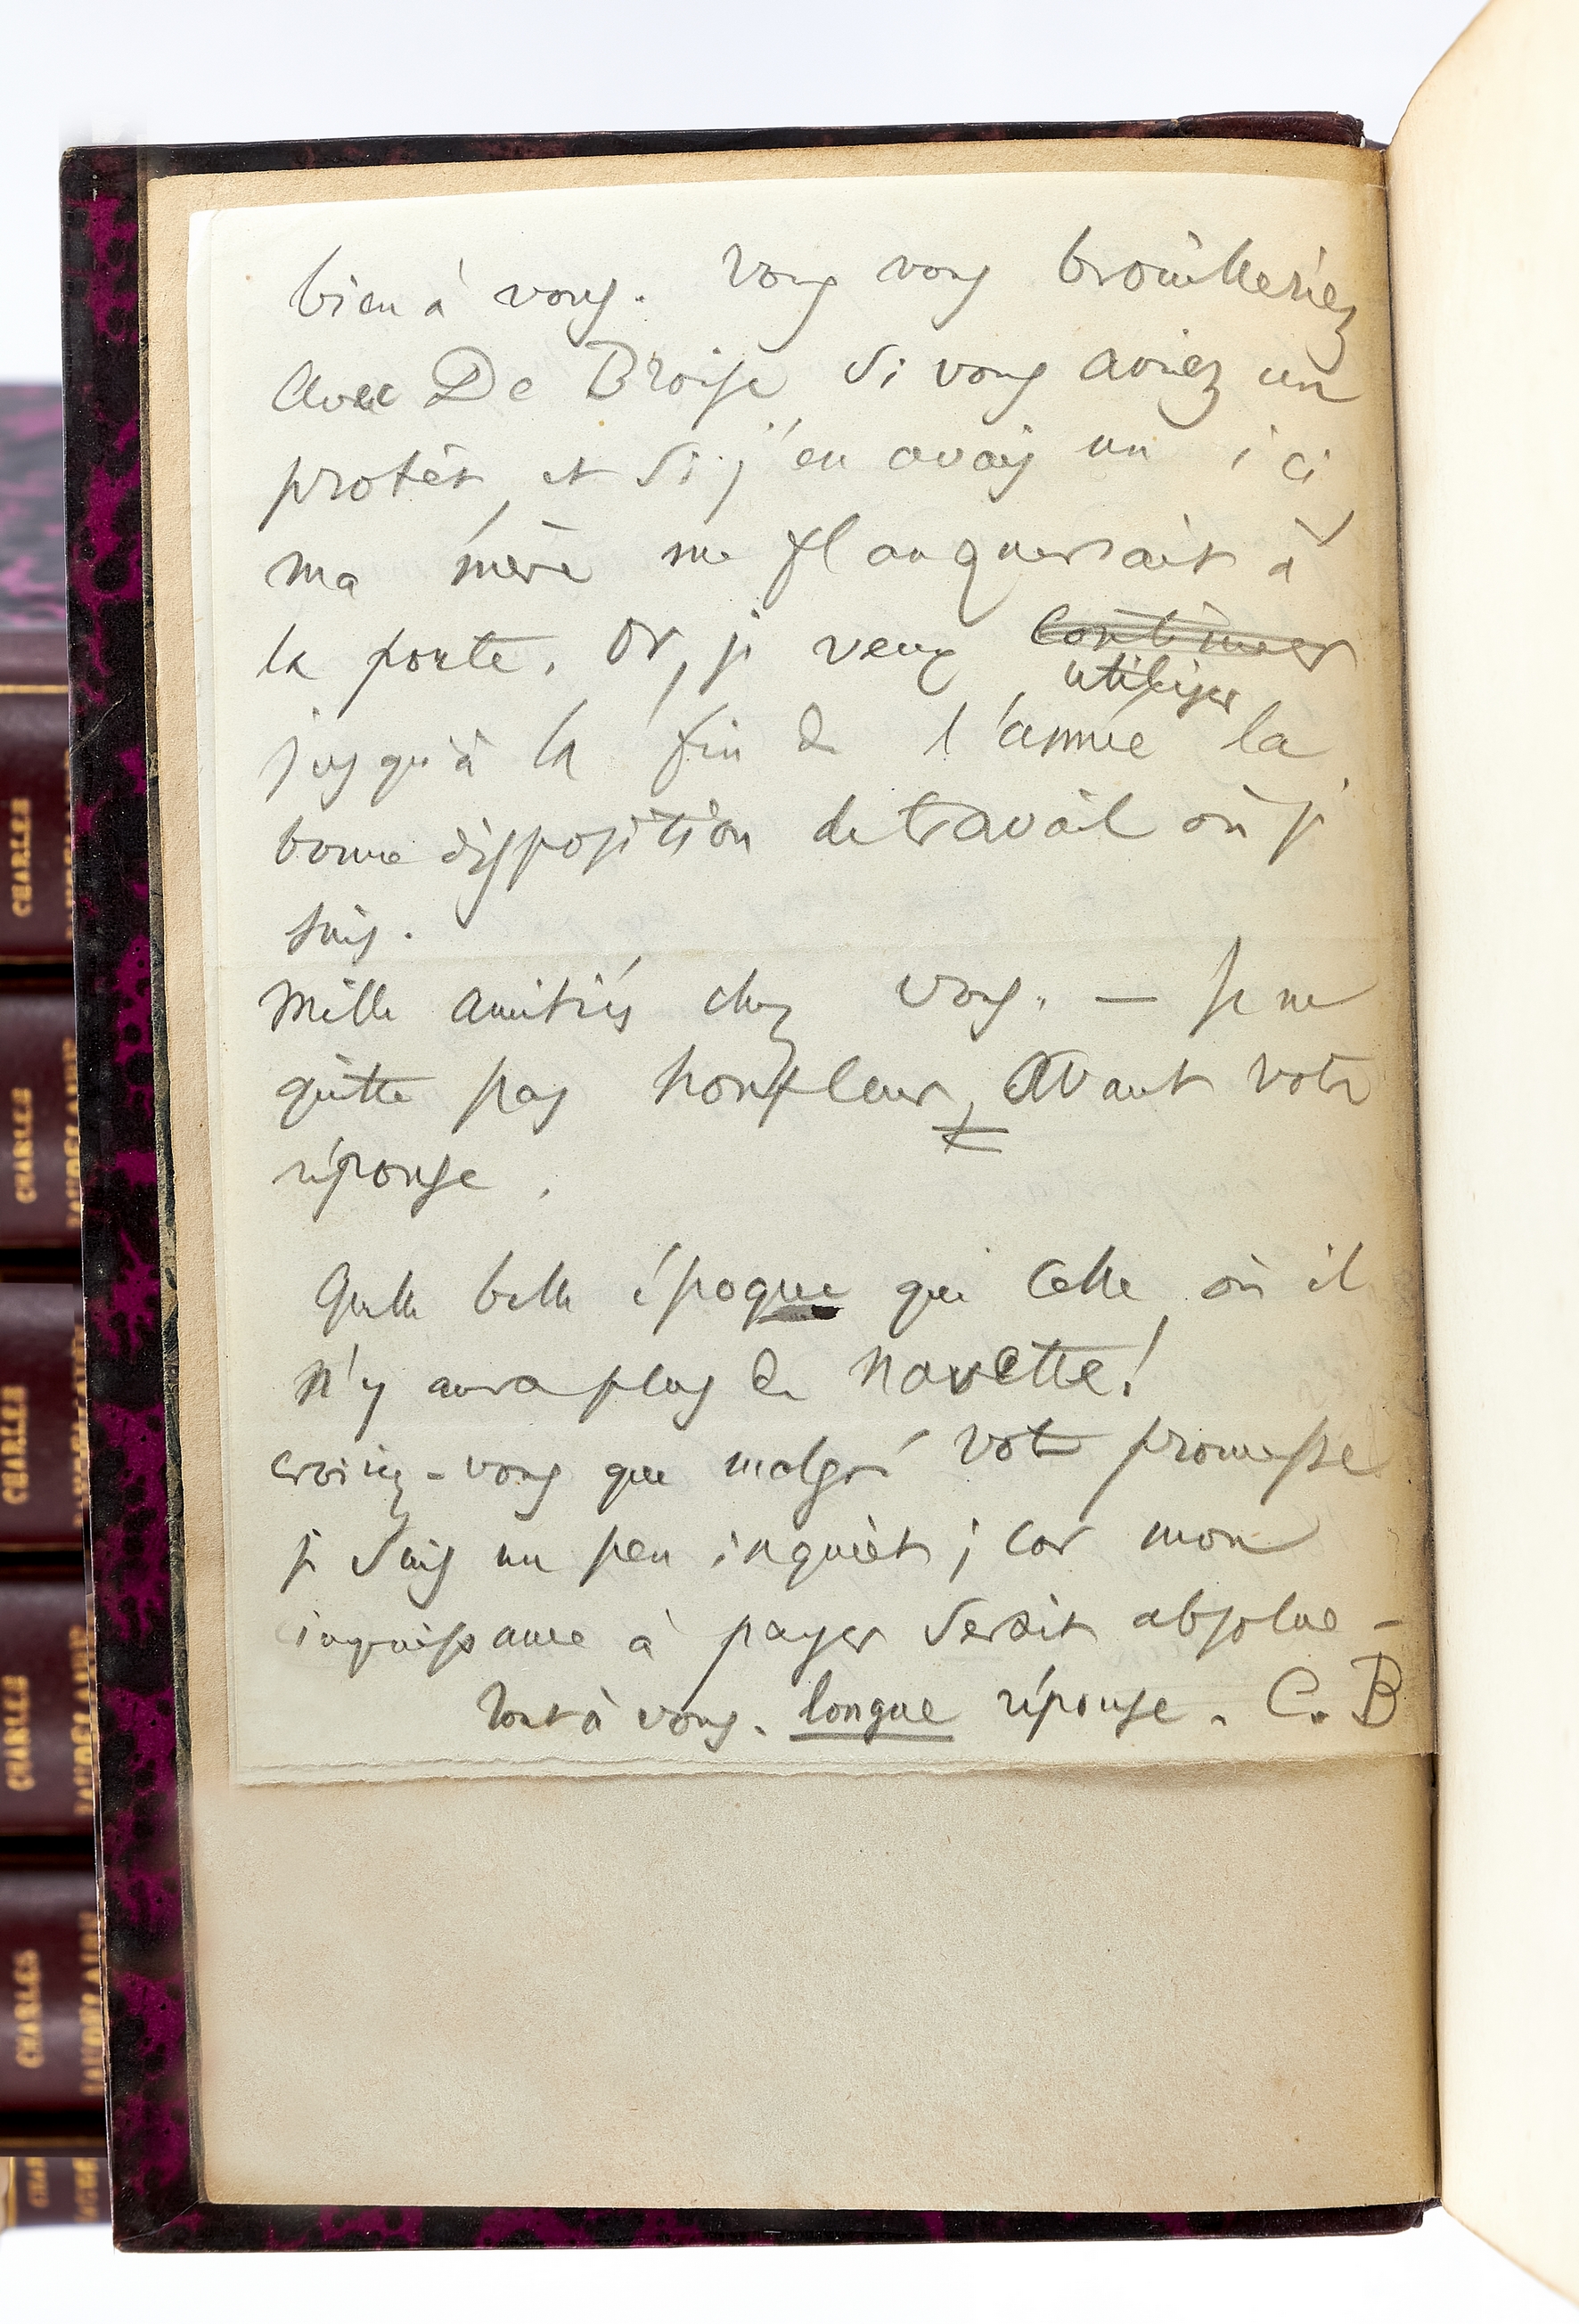 bien à vous. Vous vous brouilleriez
avec De Broise, si vous aviez un
protêt, et si j'en avais un ici,
ma mère me flanquerait à
la porte. Or, je veux continuer
utiliser
jusqu'à la fin de l'année la
bonne disposition de travail où je
suis.
Mille amitiés chez vous. — Je ne
quitte pas honfleur, avant votre
réponse.
Quelle belle époque que celle où il
n'y aura plus de navette!
croiriez-vous que malgré votre promesse
je suis un peu inquiet; car mon
impuissance à payer serait absolue —
Tout à vous. longue réponse. C. B
CHARLES
CHARLES
CHARLES
CHARLES
CHARLES